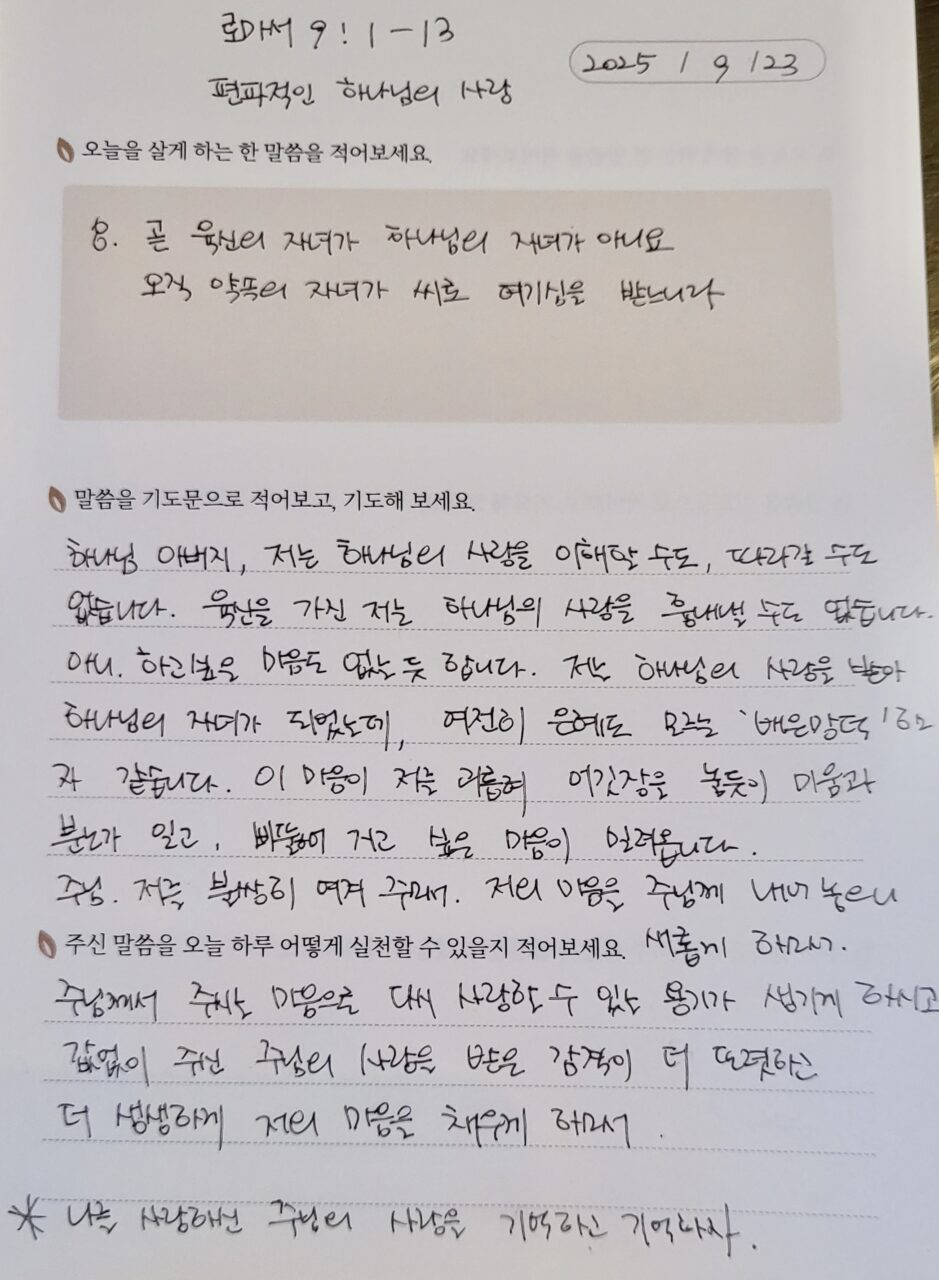 로마서 9:1-13
2025 / 9 /23
편파적인 하나님의 사랑
오늘을 살게 하는 한 말씀을 적어보세요.
8. 곧 육신의 자녀가 하나님의 자녀가 아니요
오직 약속의 자녀가 씨로 여기심을 받느니라
말씀을 기도문으로 적어보고, 기도해 보세요.
하나님 아버지, 저는 하나님의 사랑을 이해할 수도, 따라갈 수도
없습니다. 육신을 가진 저는 하나님의 사랑을 흉내낼 수도 없습니다.
아니. 하고싶은 마음도 없는 듯 합니다. 저는 하나님의 사랑을 받아
하나님의 자녀가 되었는데, 여전히 은혜도 모르는 '배은망덕'한
자 같습니다. 이 마음이 저를 괴롭혀 어깃장을 놓듯이 미움과
분노가 일고, 삐뚤어 지고 싶은 마음이 밀려옵니다.
주님. 저를 불쌍히 여겨 주며서. 저의 마음을 주님께 내어 놓으니
주신 말씀을 오늘 하루 어떻게 실천할 수 있을지 적어보세요.
새롭게 하며서.
주님께서 주시는 마음으로 다시 사랑할 수 있는 용기가 생기게 하시고
값없이 주신 주님의 사랑을 받은 감격이 더 또렷하고
더 생생하게 저의 마음을 채우게 하며서.
* 나를 사랑하신 주님의 사랑을 기억하고 기억하자.